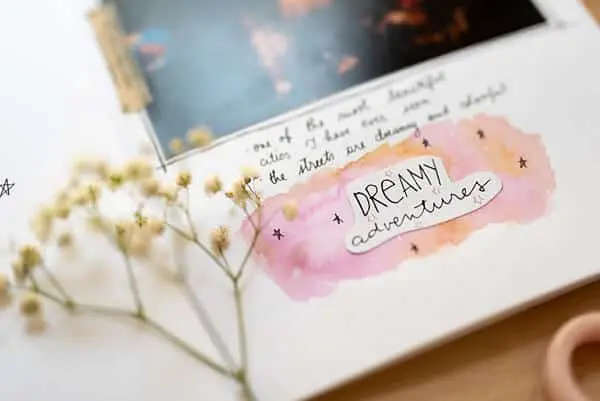 one of the most beautiful
cities I have ever seen
the streets are dreamy and colorful
DREAMY
adventures